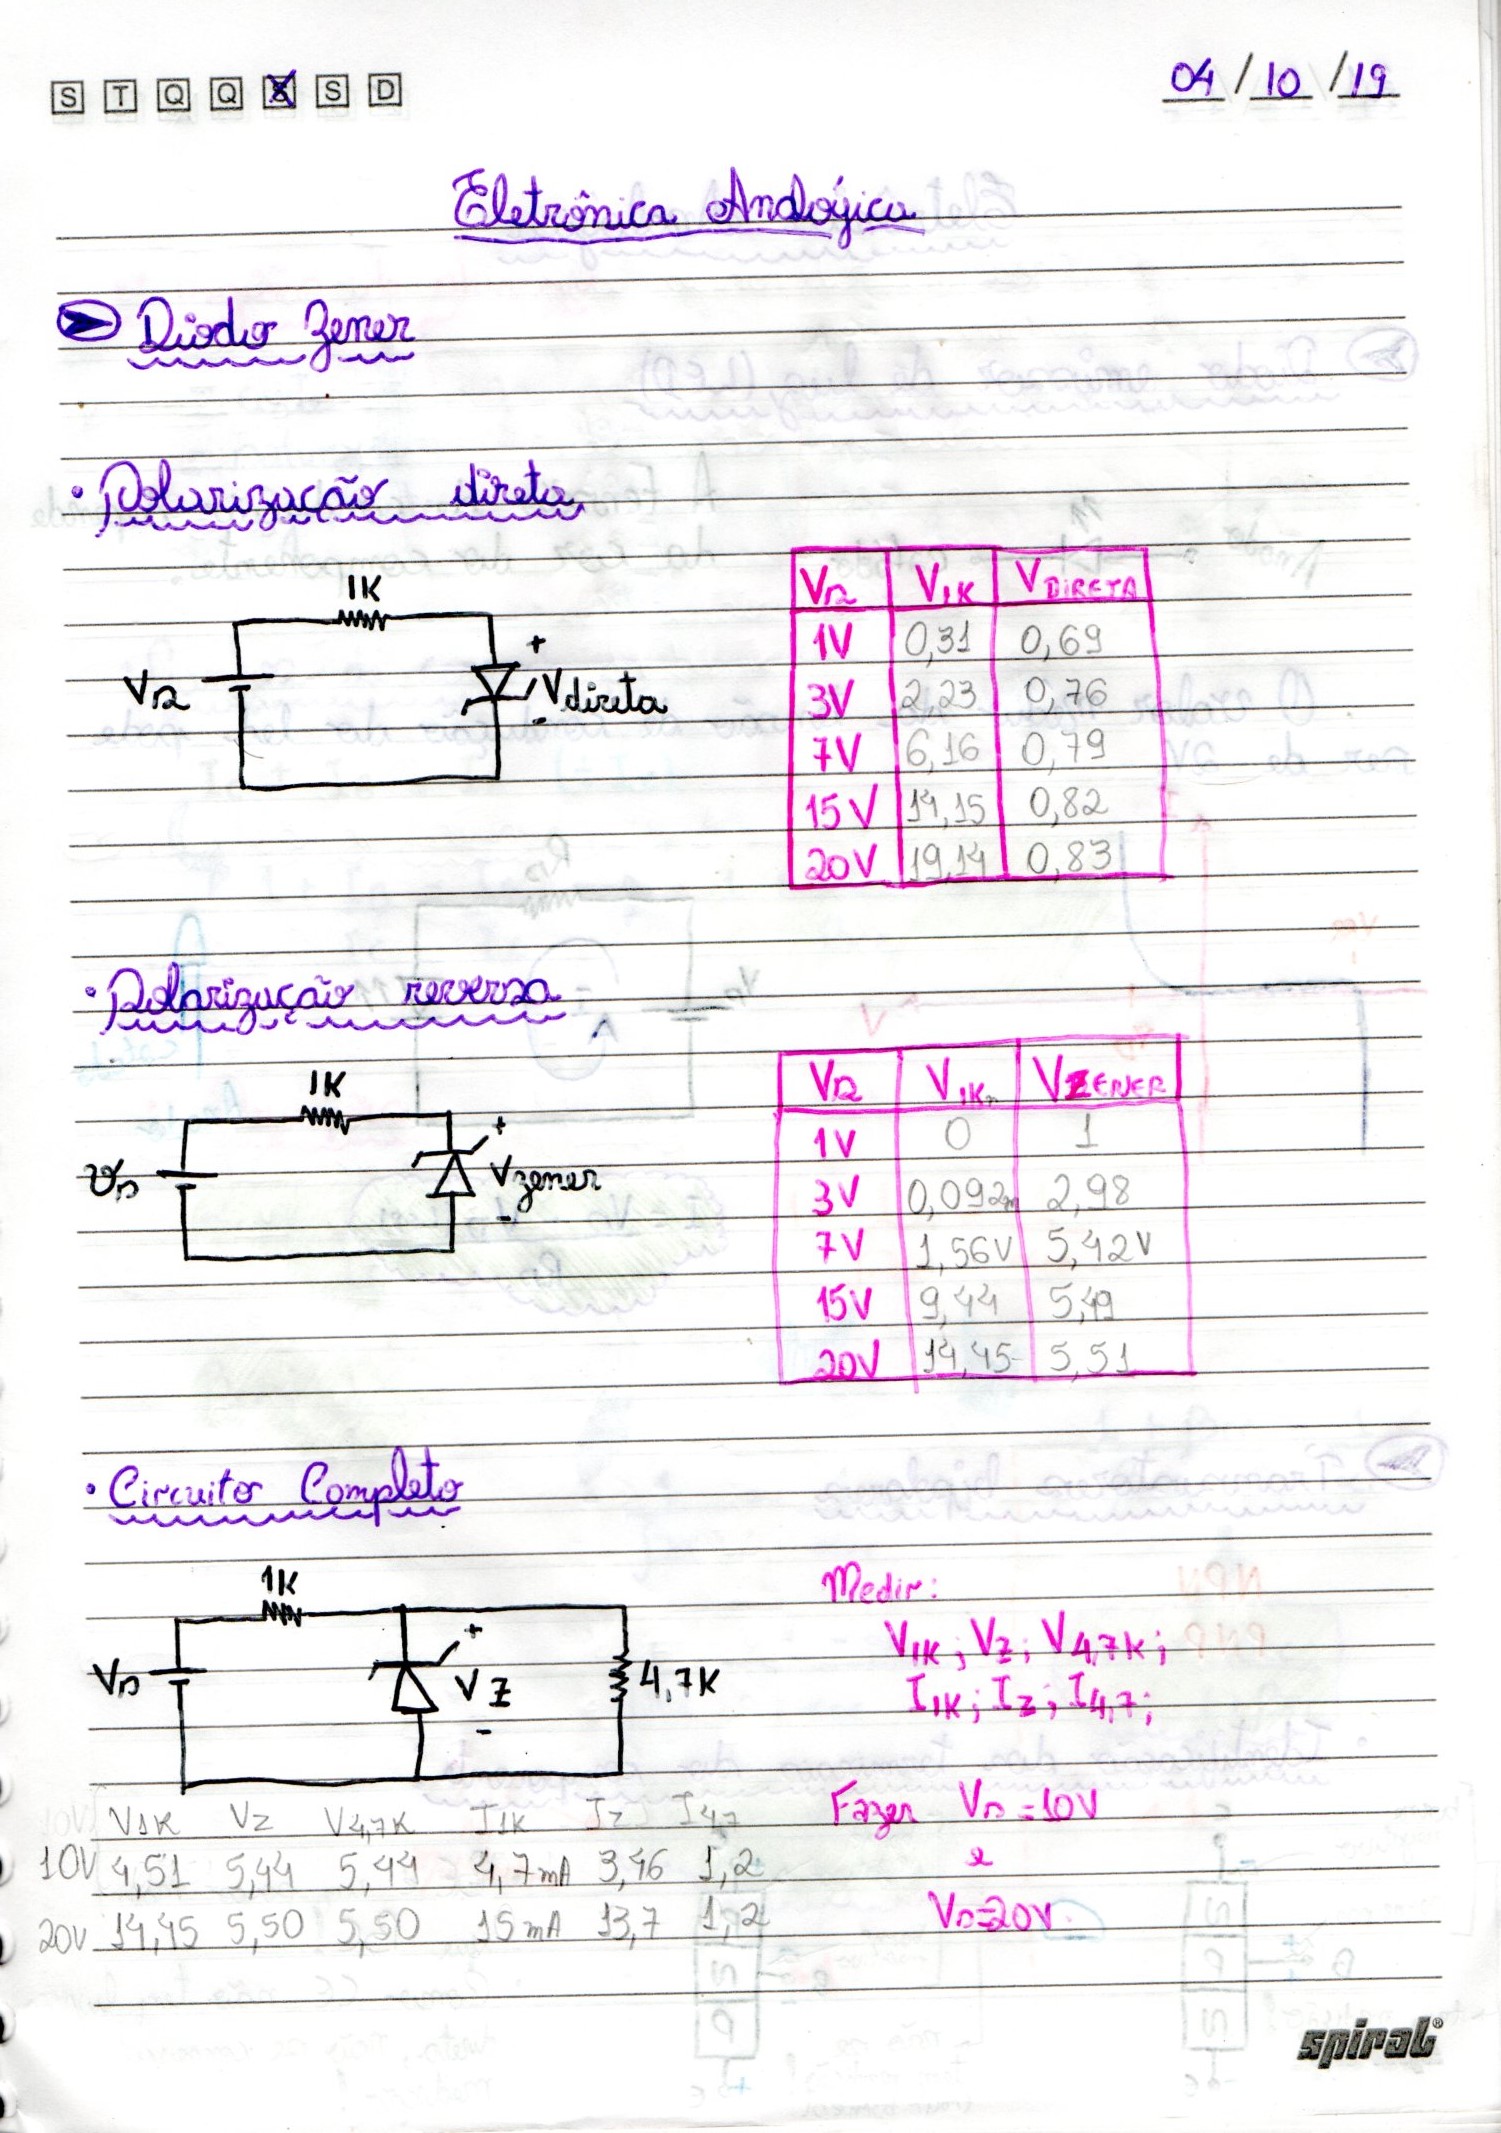 S T Q Q S S D 04/10/19
Eletrônica Analógica
Diodo Zener
• Polarização direta
1K
Vs
+
Vdireta
-
Vs V1K VDIRETA
1V 0,31 0,69
3V 2,23 0,76
7V 6,16 0,79
15V 14,15 0,82
20V 19,14 0,83
• Polarização reversa
1K
Vs
+
Vzener
-
Vs V1K VZENER
1V 0 1
3V 0,092m 2,98
7V 1,56V 5,42V
15V 9,44 5,49
20V 14,45 5,51
• Circuito Completo
1K
Vs
+
VZ
-
4,7K
Medir:
V1K; VZ; V4,7K;
I1K; IZ; I4,7;
Fazer Vs=10V
e
Vs=20V.
V1K VZ V4,7K I1K IZ I4,7
10V 4,51 5,44 5,44 4,7mA 3,46 1,2
20V 14,45 5,50 5,50 15mA 13,7 1,2
spiral®